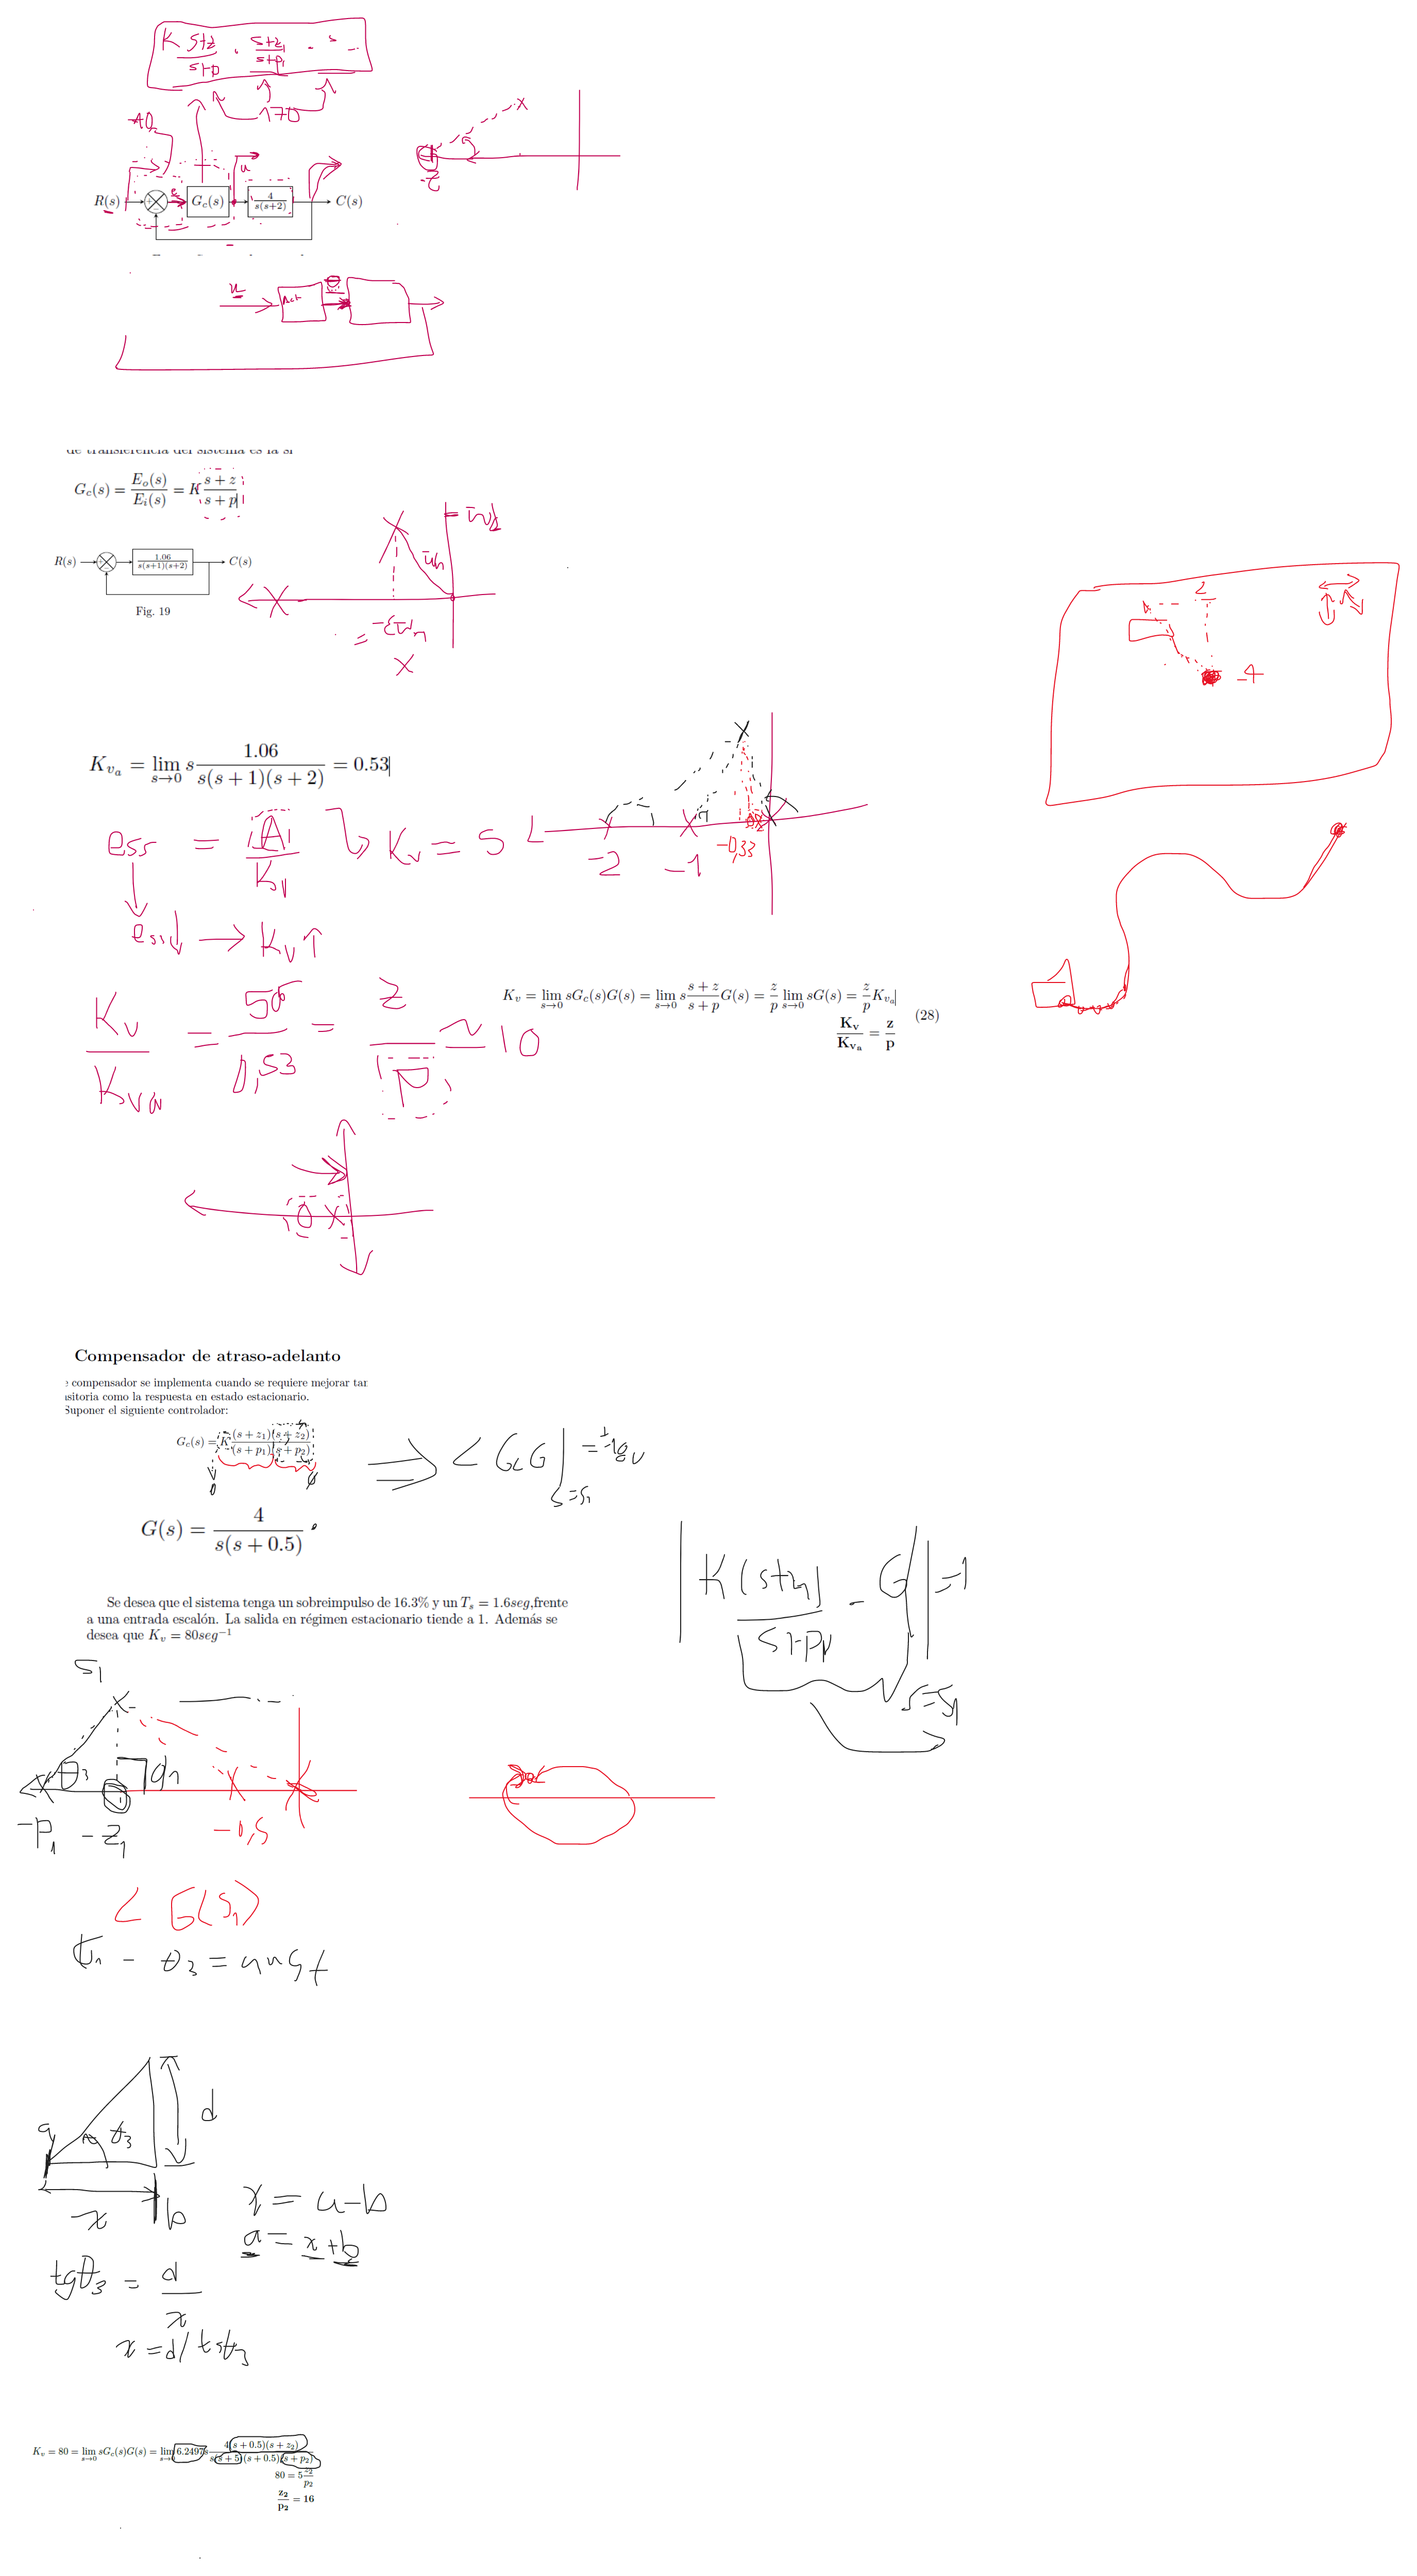 K (s+z)/(s+p) · (s+z₁)/(s+p₁) · s -
170
40
u
R(s) e G_c(s) 4/(s(s+2)) C(s)
-z
u Act θ
de transferencia del sistema es la si
G_c(s) = E_o(s)/E_i(s) = K (s+z)/(s+p)
R(s) 1.06/(s(s+1)(s+2)) C(s)
Fig. 19
= wd
wn
= -ξwn
X
2
-4
K_{v_a} = lim_{s→0} s 1.06/(s(s+1)(s+2)) = 0.53
ess = A/Kv Kv = 5
-2 -1 -0,33
ess↓ → Kv↑
K_v = lim_{s→0} sG_c(s)G(s) = lim_{s→0} s (s+z)/(s+p) G(s) = z/p lim_{s→0} sG(s) = z/p K_{v_a}
K_v/K_{v_a} = z/p (28)
Kv/Kva = 5/0,53 = z/p ≃ 10
Compensador de atraso-adelanto
e compensador se implementa cuando se requiere mejorar tan
nsitoria como la respuesta en estado estacionario.
Suponer el siguiente controlador:
G_c(s) = K (s+z₁)(s+z₂)/((s+p₁)(s+p₂))
⇒ < GcG | s=s₁ = ±180
G(s) = 4/(s(s+0.5))
|K (s+z₁)/(s+p₁) · G| = 1
s=s₁
Se desea que el sistema tenga un sobreimpulso de 16.3% y un T_s = 1.6seg,frente
a una entrada escalón. La salida en régimen estacionario tiende a 1. Además se
desea que K_v = 80seg⁻¹
s₁
θ₃
-p₁ -z₁ -0,5
< G(s₁)
- θ₃ = angf
a θ₃ d
x b
x = a-b
a = x+b
tgθ₃ = d/x
x = d/tgθ₃
K_v = 80 = lim_{s→0} sG_c(s)G(s) = lim_{s→0} 6.2497s 4(s+0.5)(s+z₂)/(s(s+5)(s+0.5)(s+p₂))
80 = 5 z₂/p₂
z₂/p₂ = 16